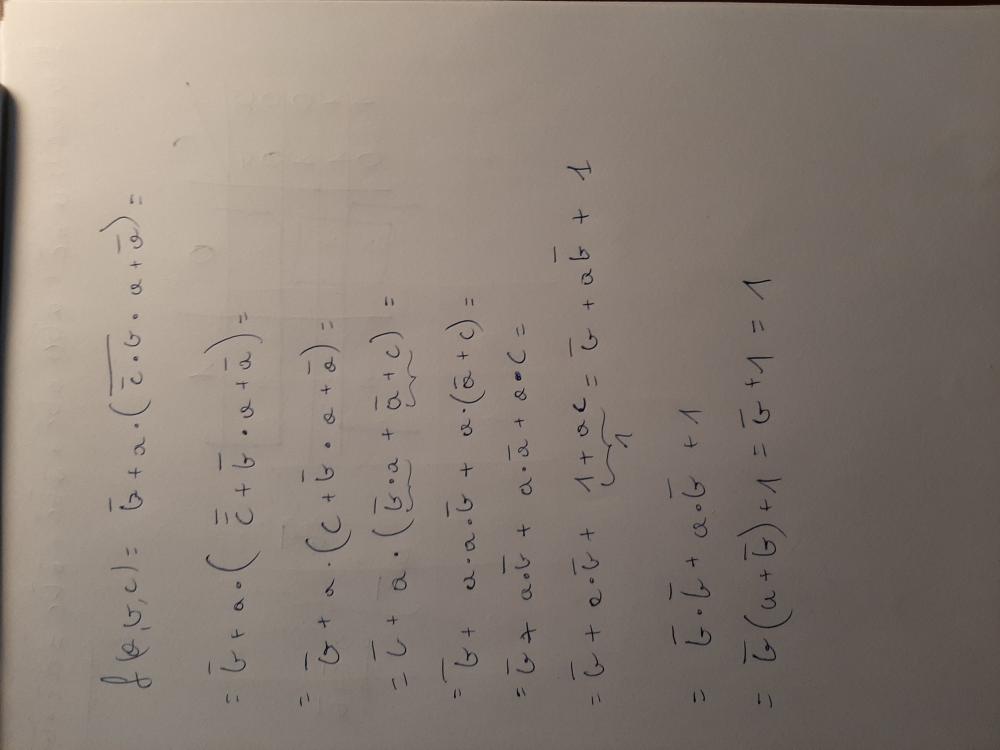 f(a,b,c) = b̅ + a·(\overline{c̅·b}·a + a̅) =
= b̅ + a·(c̿ + b̅·a + a̅) =
= b̅ + a·(c + b̅·a + a̅) =
= b̅ + a·(b̅·a + a̅ + c) =
= b̅ + a·a·b̅ + a·(a̅ + c) =
= b̅ + a·b̅ + a·a̅ + a·c =
= b̅ + a·b̅ + 1 + ac = b̅ + ab̅ + 1
1
= b̅·b̅ + a·b̅ + 1
= b̅(a + b̅) + 1 = b̅ + 1 = 1